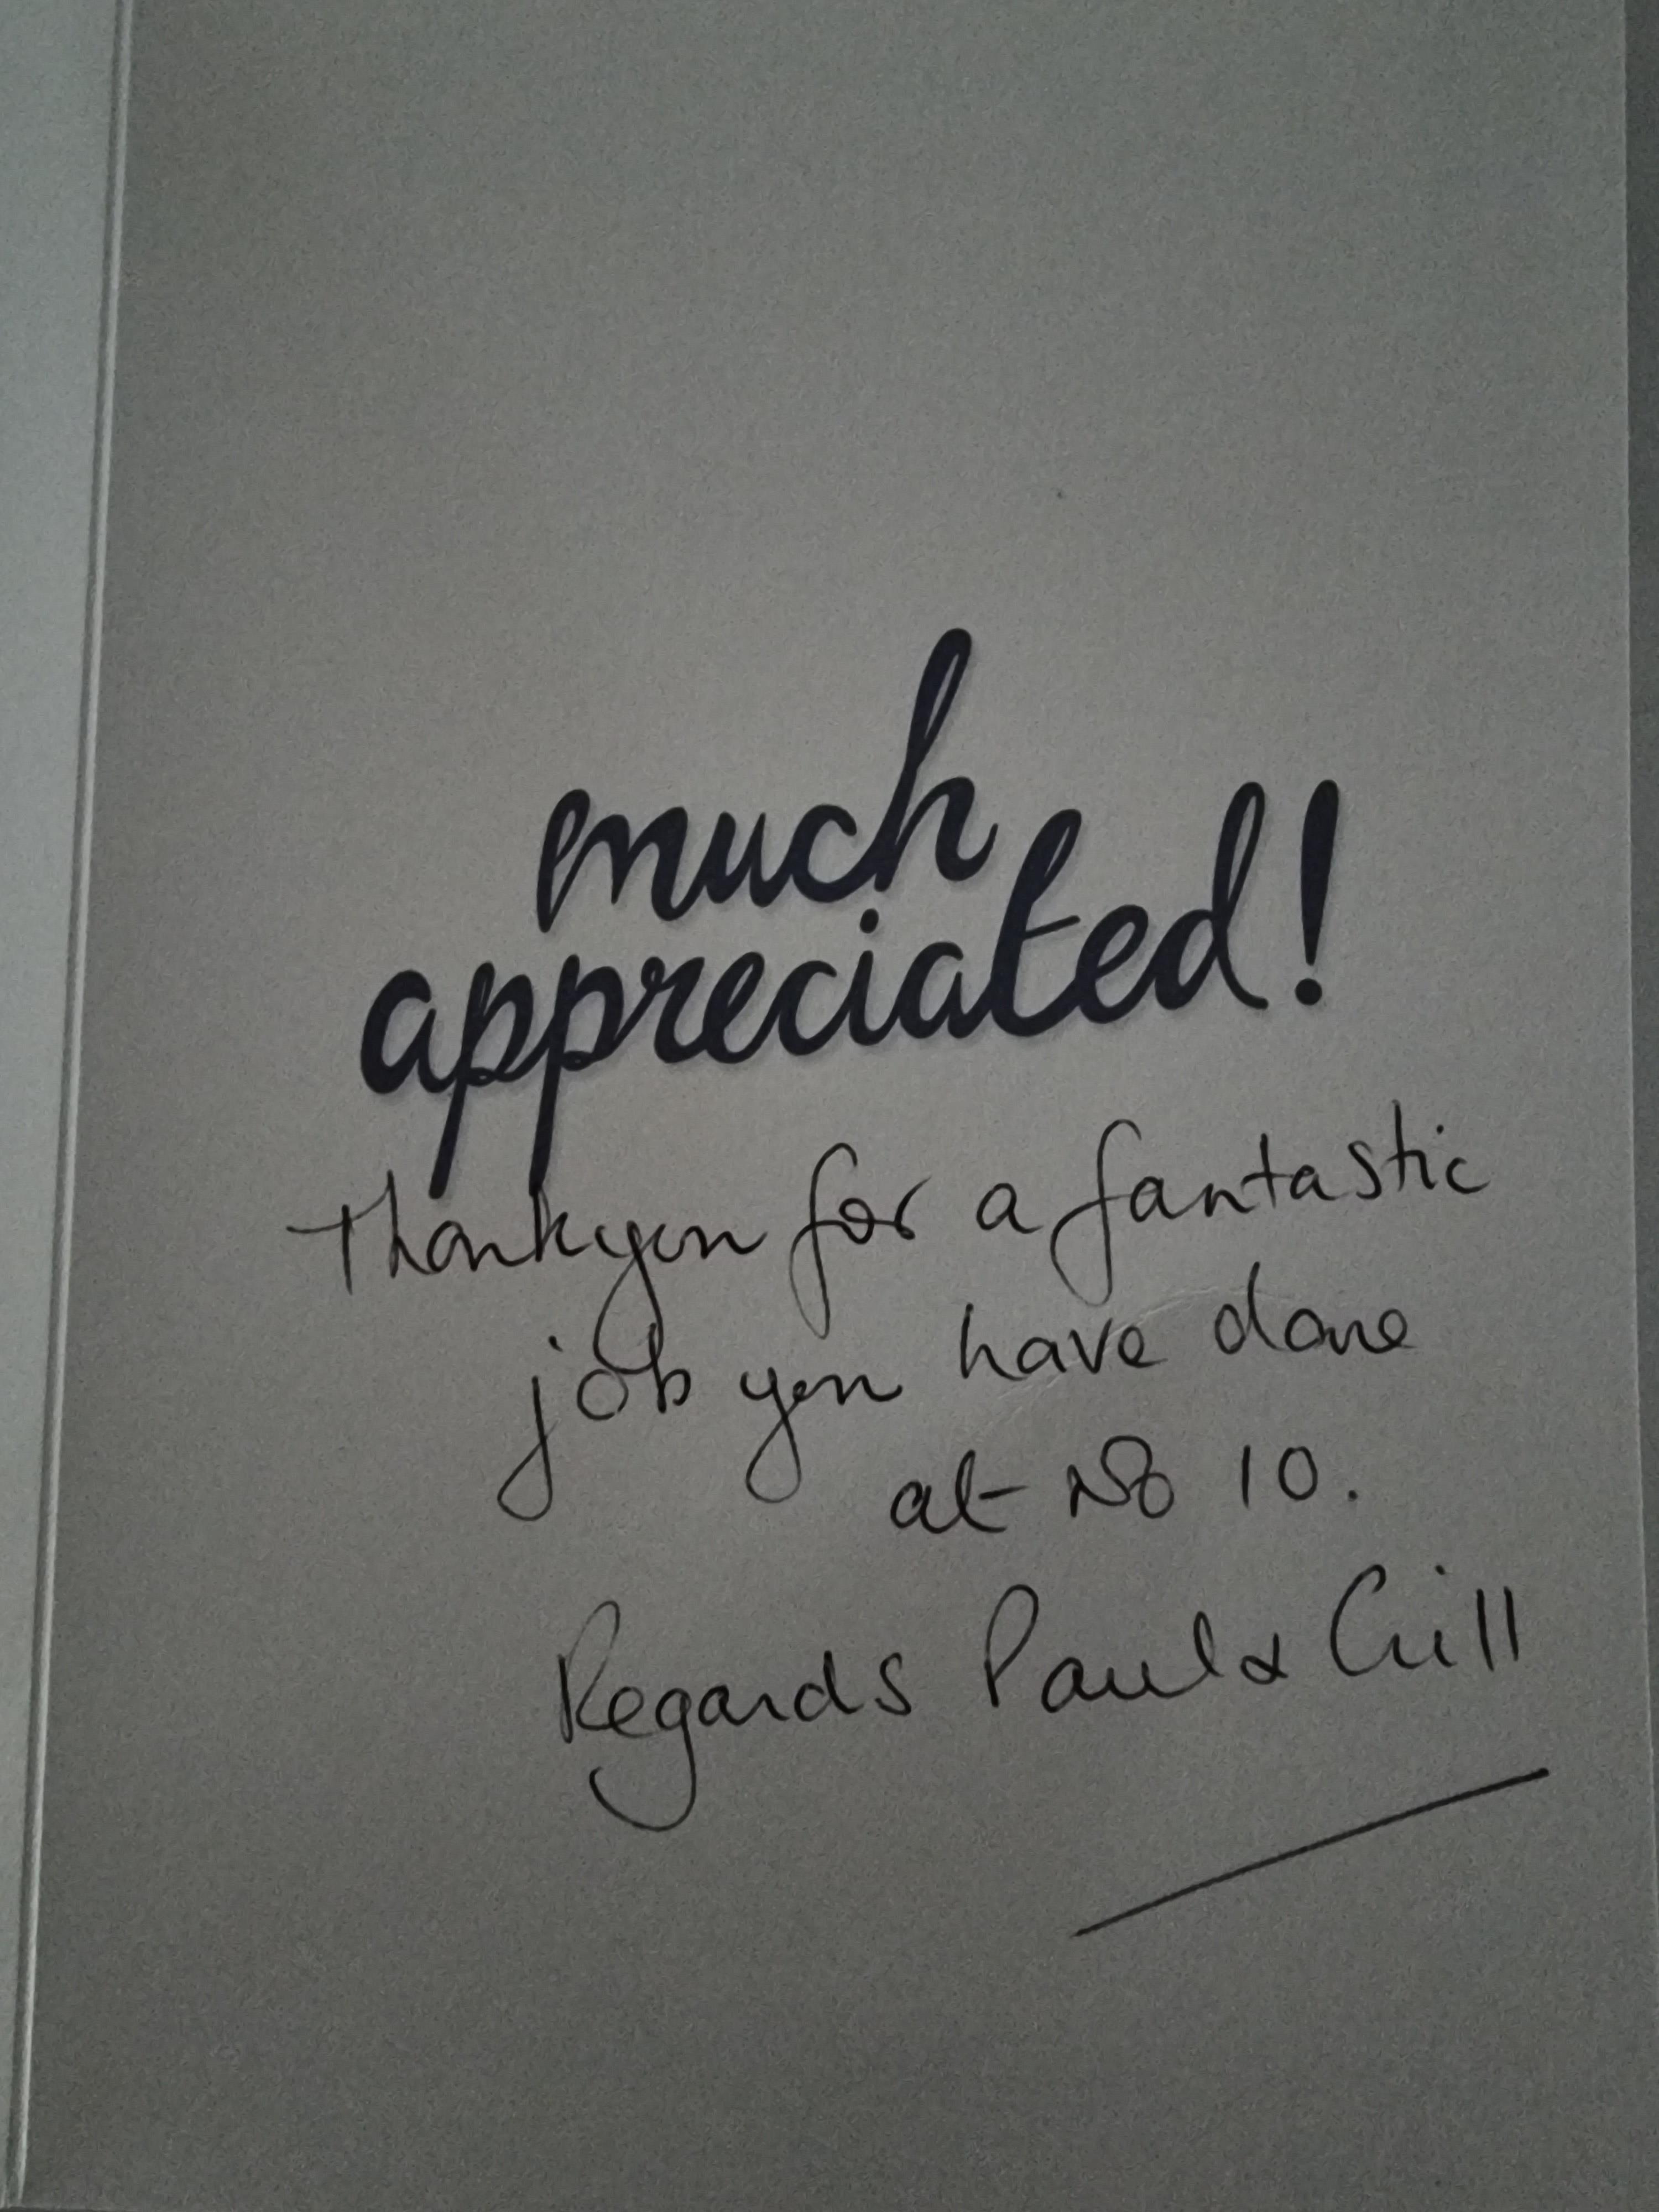 much
appreciated!
Thankyou for a fantastic
job you have done
at No 10.
Regards Paul & Gill